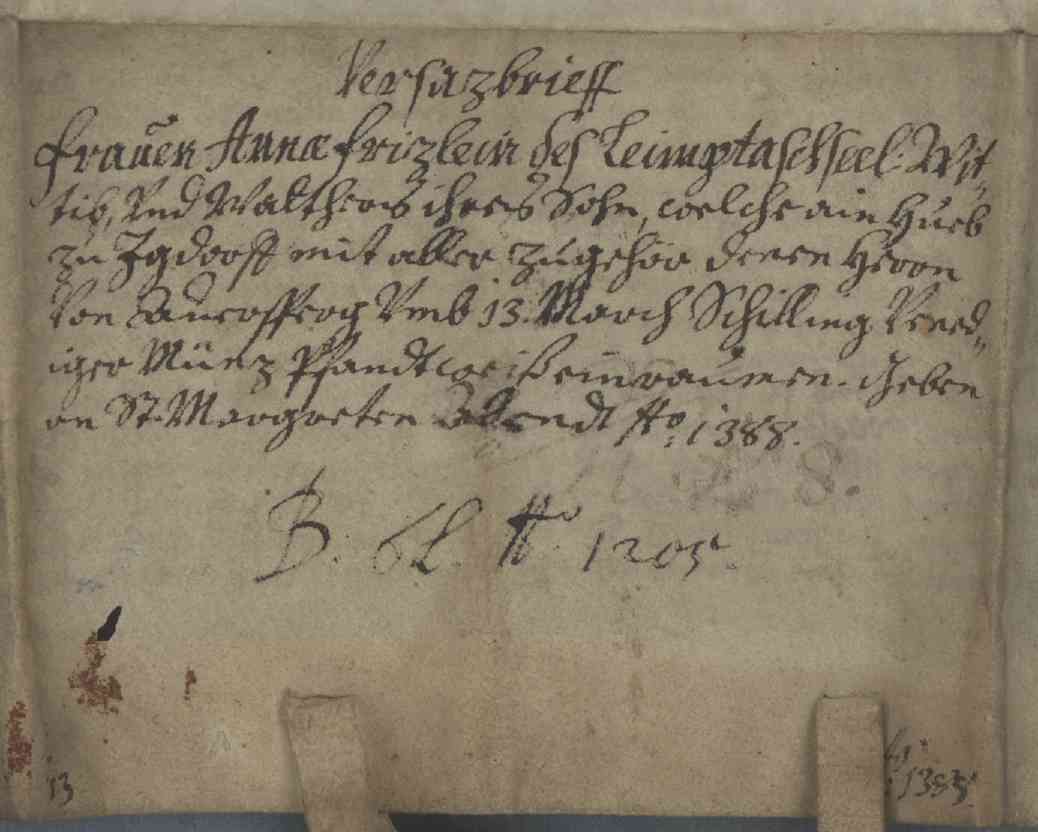 Versazbrieff
Frauen Annæ Frizlein des Leimptasch seel: Wit„
tib, Vnd Walthers ihres Sohn, welche ain Hueb
zu Igdorff mit aller zugehör denen Herrn
Von Aursperg Vmb 13. March Schilling Vened„
iger Münz Pfandtweiß einraumen. Geben
an St. Margreten Abendt Aº. 1388.
B. 6L. Nº. 1205.
13
Aº. 1385